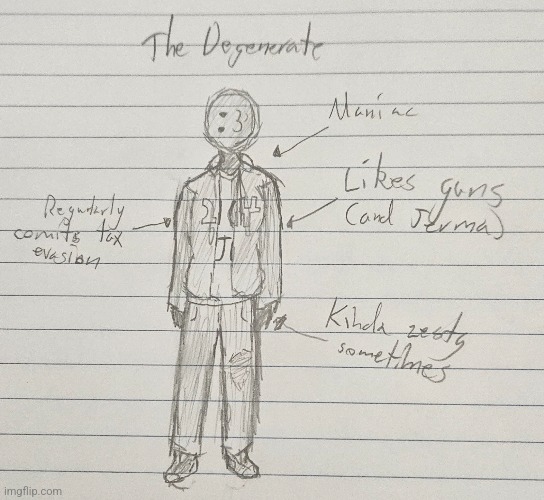 The Degenerate
:3
Maniac
Likes guns
(and Jerma)
Regularly
comits tax
evasion
Kinda zesty
sometimes
imgflip.com